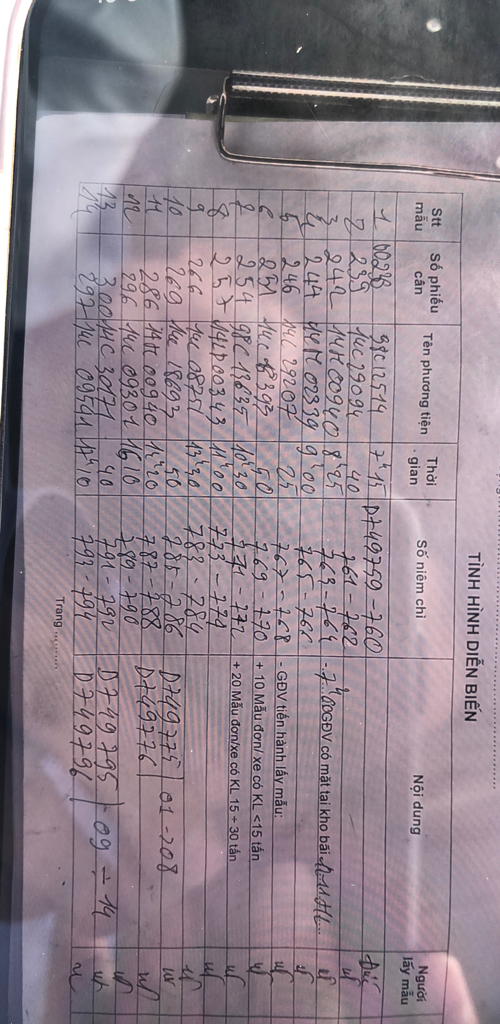 TÌNH HÌNH DIỄN BIẾN
Stt mẫu Số phiếu cân Tên phương tiện Thời gian Số niêm chì Nội dung Người lấy mẫu
1 00238 98C12514 7h15 D749759 - 760 Đức
2 239 14C 29094 40 761 - 762
3 242 14H 00940 8h25 763 - 764 - 7h00 GĐV có mặt tại kho bãi
4 244 14H 02339 9h00 765 - 766
5 246 14C 29207 25 767 - 768 - GĐV tiến hành lấy mẫu:
6 251 14C 18393 50 769 - 770 + 10 Mẫu đơn/ xe có KL <15 tấn
7 254 98C 11635 10h30 771 - 772 + 20 Mẫu đơn/xe có KL 15 ÷ 30 tấn
8 257 14H 00343 11h00 773 - 774
9 266 14C 0875 13h30 783 - 784
10 269 14C 8693 50 785 - 786 D749775 01 - 208
11 286 14H 00940 14h20 787 - 788 D749776
12 296 14C 09301 16h10 789 - 790
13 300 14C 3071 40 791 - 792 D749795 09 ÷ 14
14 297 14C 09541 17h10 793 - 794 D749796
Trang ............